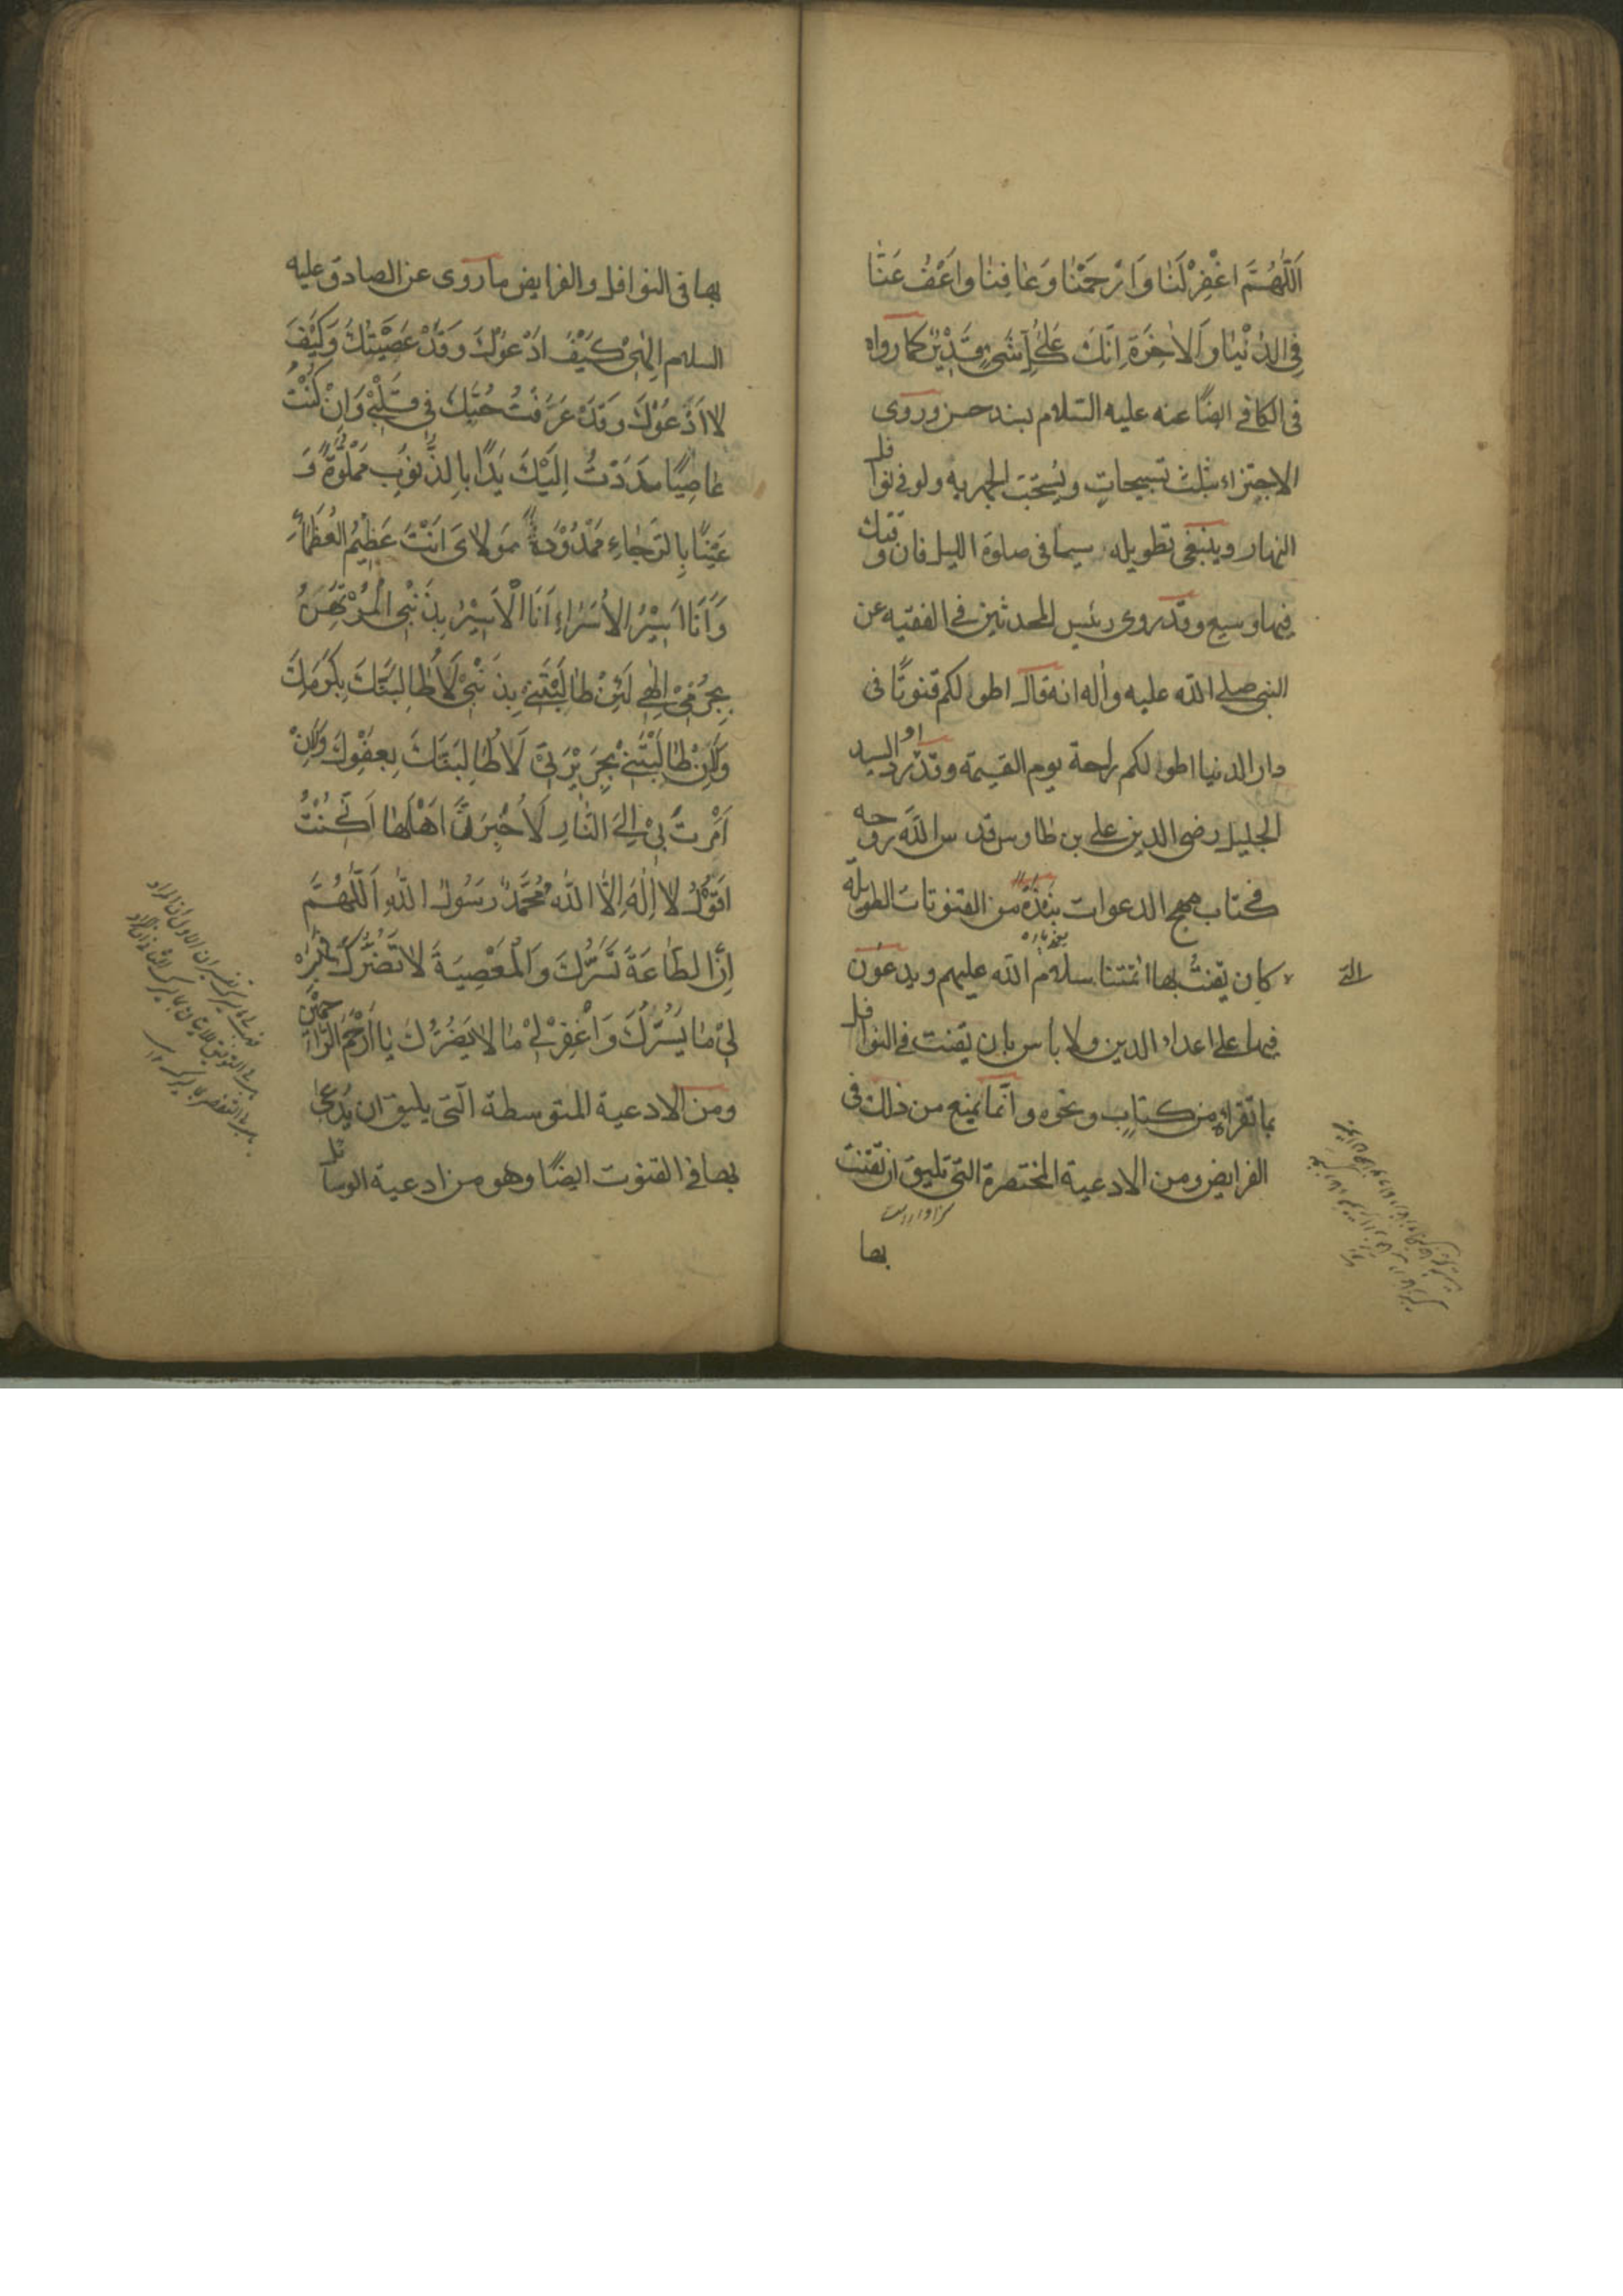 اَللّٰهُمَّ اغْفِرْ لَنَا وَارْحَمْنَا وَعَافِنَا وَاعْفُ عَنَّا
فِي الدُّنْيَا وَالْاٰخِرَةِ اِنَّكَ عَلٰى كُلِّ شَيْءٍ قَدِيْرٌ كما رواه
في الكافي ايضًا عنه عليه السّلام بسند حسن وروى
الاجتزاء بثلث تسبيحاتٍ ويُستحبّ الجهر به ولو في نوافل
النهار وينبغى تطويله سيما في صلوة الليل فان وقتك
فيها وسيع وقد روى رئيس المحدثين في الفقيه عن
النبي صلى الله عليه واٰله انه قال اطولكم قنوتًا في
دار الدنيا اطولكم راحة يوم القيمة وقد اورد السيد
الجليل رضي الدين علي بن طاوس قدس الله روحه
في كتاب مهج الدعوات نبذة من القنوتات الطويلة
التي
كان يقنت بها ائمتنا سلام الله عليهم ويدعون
فيها على اعداء الدين ولا بأس بان يقنت في النوافل
بما تقراه من كتاب ونحوه وانّما يمنع من ذلك في
الفرايض ومن الادعية المختصرة التي تليق ان تقنت
بها
بها في النوافل والفرايض ما روى عن الصادق عليه
السلام اِلٰهِيْ كَيْفَ اَدْعُوْكَ وَقَدْ عَصَيْتُكَ وَكَيْفَ
لَا اَدْعُوْكَ وَقَدْ عَرَفْتُ حُبَّكَ فِي قَلْبِيْ وَاِنْ كُنْتُ
عَاصِيًا مَدَدْتُ اِلَيْكَ يَدًا بِالذُّنُوْبِ مَمْلُوَّةً وَ
عَيْنًا بِالرَّجَاءِ مَمْدُوْدَةً مَوْلَايَ اَنْتَ عَظِيْمُ الْعُظَمَاءِ
وَاَنَا اَسِيْرُ الْاُسَرَاءِ اَنَا الْاَسِيْرُ بِذَنْبِي الْمُرْتَهَنُ
بِجُرْمِيْ اِلٰهِيْ لَئِنْ طَالَبْتَنِيْ بِذَنْبِيْ لَاُطَالِبَنَّكَ بِكَرَمِكَ
وَلَئِنْ طَالَبْتَنِيْ بِجَرِيْرَتِيْ لَاُطَالِبَنَّكَ بِعَفْوِكَ وَلَئِنْ
اَمَرْتَ بِيْ اِلَى النَّارِ لَاُخْبِرَنَّ اَهْلَهَا اَنِّيْ كُنْتُ
اَقُوْلُ لَا اِلٰهَ اِلَّا اللّٰهُ مُحَمَّدٌ رَسُوْلُ اللّٰهِ اَللّٰهُمَّ
اِنَّ الطَّاعَةَ تَسُرُّكَ وَالْمَعْصِيَةَ لَا تَضُرُّكَ فَهَبْ
لِيْ مَا يَسُرُّكَ وَاغْفِرْ لِيْ مَا لَا يَضُرُّكَ يَا اَرْحَمَ الرَّاحِمِيْنَ
ومن الادعية المتوسطة الّتي يليق ان يُدعى
بها في القنوت ايضًا وهو من ادعية الوسائل